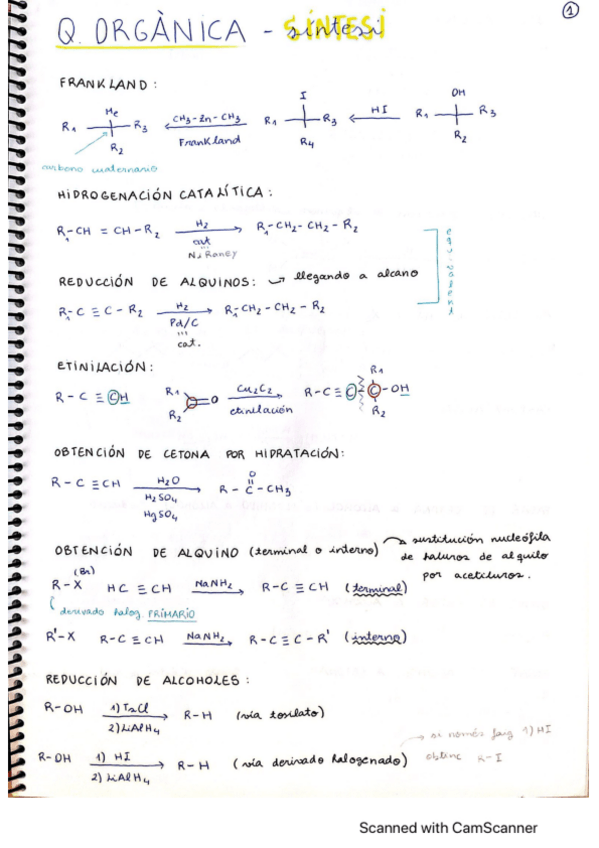 ①
Q. ORGÀNICA - SÍNTESI
FRANKLAND:
R₁ Me R₃ R₂ ← CH₃-Zn-CH₃ Frankland R₁ I R₃ R₄ ← HI R₁ OH R₃ R₂
carbono cuaternario
HIDROGENACIÓN CATALÍTICA:
R₁-CH = CH-R₂ → H₂ cat Ni Raney R₁-CH₂-CH₂-R₂
equivalent
REDUCCIÓN DE ALQUINOS: ↝ llegando a alcano
R₁-C≡C-R₂ → H₂ Pd/C cat. R₁-CH₂-CH₂-R₂
ETINILACIÓN:
R-C≡CH R₁ R₂ =O → Cu₂C₂ etinilación R-C≡C-C-OH R₁ R₂
OBTENCIÓN DE CETONA POR HIDRATACIÓN:
R-C≡CH → H₂O H₂SO₄ HgSO₄ R-C-CH₃ O
OBTENCIÓN DE ALQUINO (terminal o interno) ↝ sustitución nucleófila
de haluros de alquilo
por acetiluros.
(Br)
R-X HC≡CH → NaNH₂ R-C≡CH (terminal)
derivado halog. PRIMARIO
R'-X R-C≡CH → NaNH₂ R-C≡C-R' (interno)
REDUCCIÓN DE ALCOHOLES:
R-OH → 1) TsCl 2) LiAlH₄ R-H (vía tosilato)
R-OH → 1) HI 2) LiAlH₄ R-H (vía derivado halogenado) → si només faig 1) HI
obtinc R-I
Scanned with CamScanner